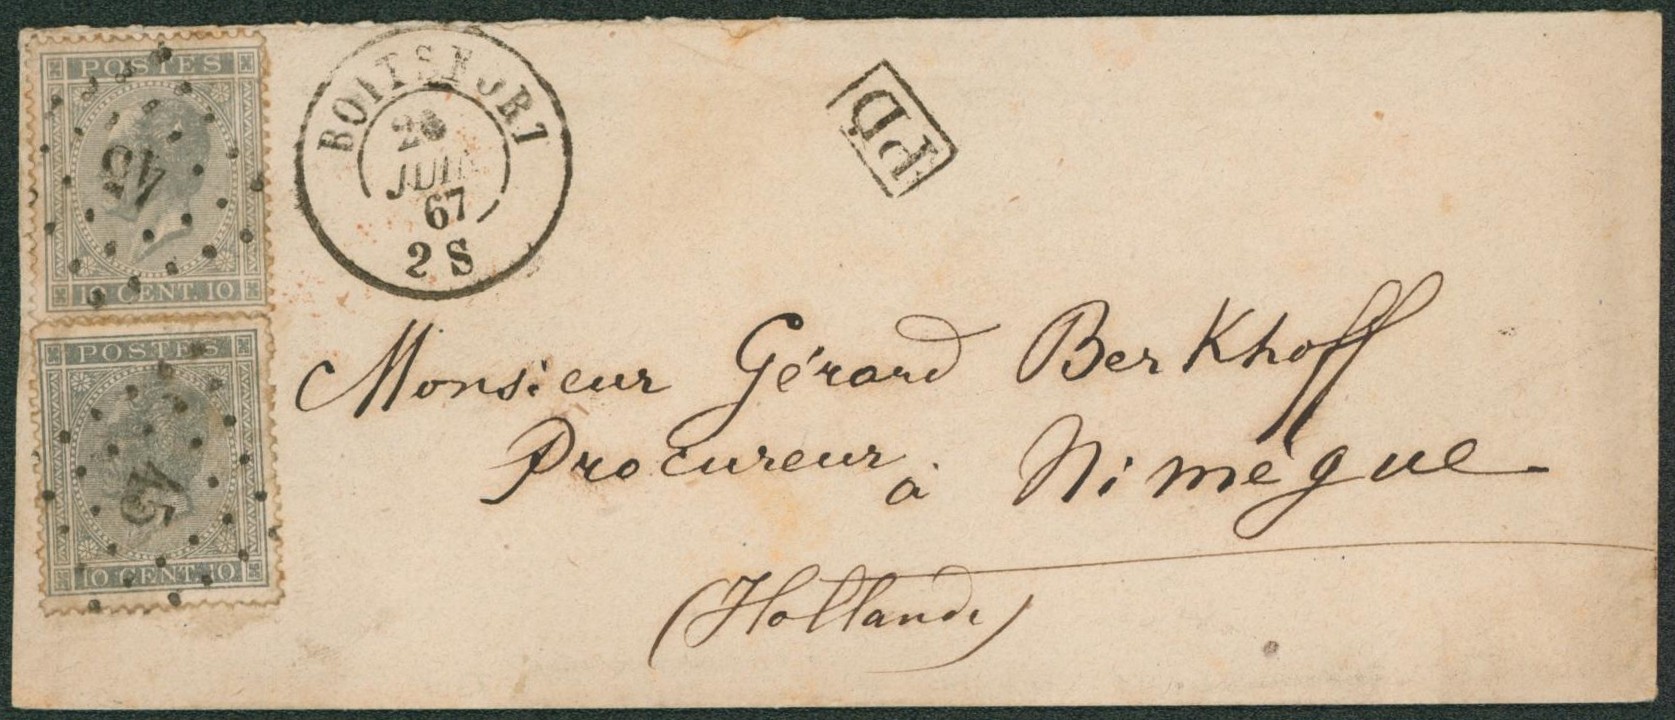 POSTES
45
10 CENT. 10
POSTES
45
10 CENT. 10
BOITSFORT
67
2 S
PD
Monsieur Gérard Berkhoff
Procureur à Nimègue
(Hollande)